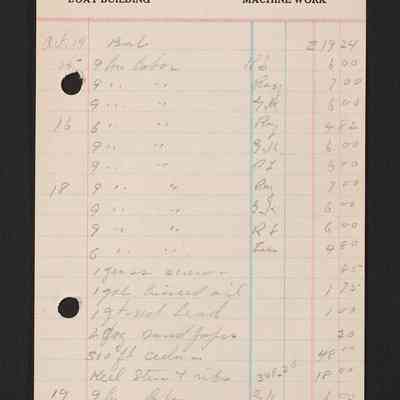 BOAT BUILDING MACHINE WORK
Oct 19 Bal 219 24
15 9 hrs labor R L 6 00
9 " " Ray 7 00
9 " " G K 6 00
16 6 " " Ray 4 82
9 " " G K 6 00
9 " " R L 6 00
18 9 " " Ray 7 00
9 " " G K 6 00
9 " " R L 6 00
6 " " 4 80
1 gross screws 65
1 gal linseed oil 1 75
1 qt red lead 1 00
2 doz sand paper 20
310 ft cedar 48 00
Keel Stem & ribs 18 00
19 9 hrs labor G K 6 00